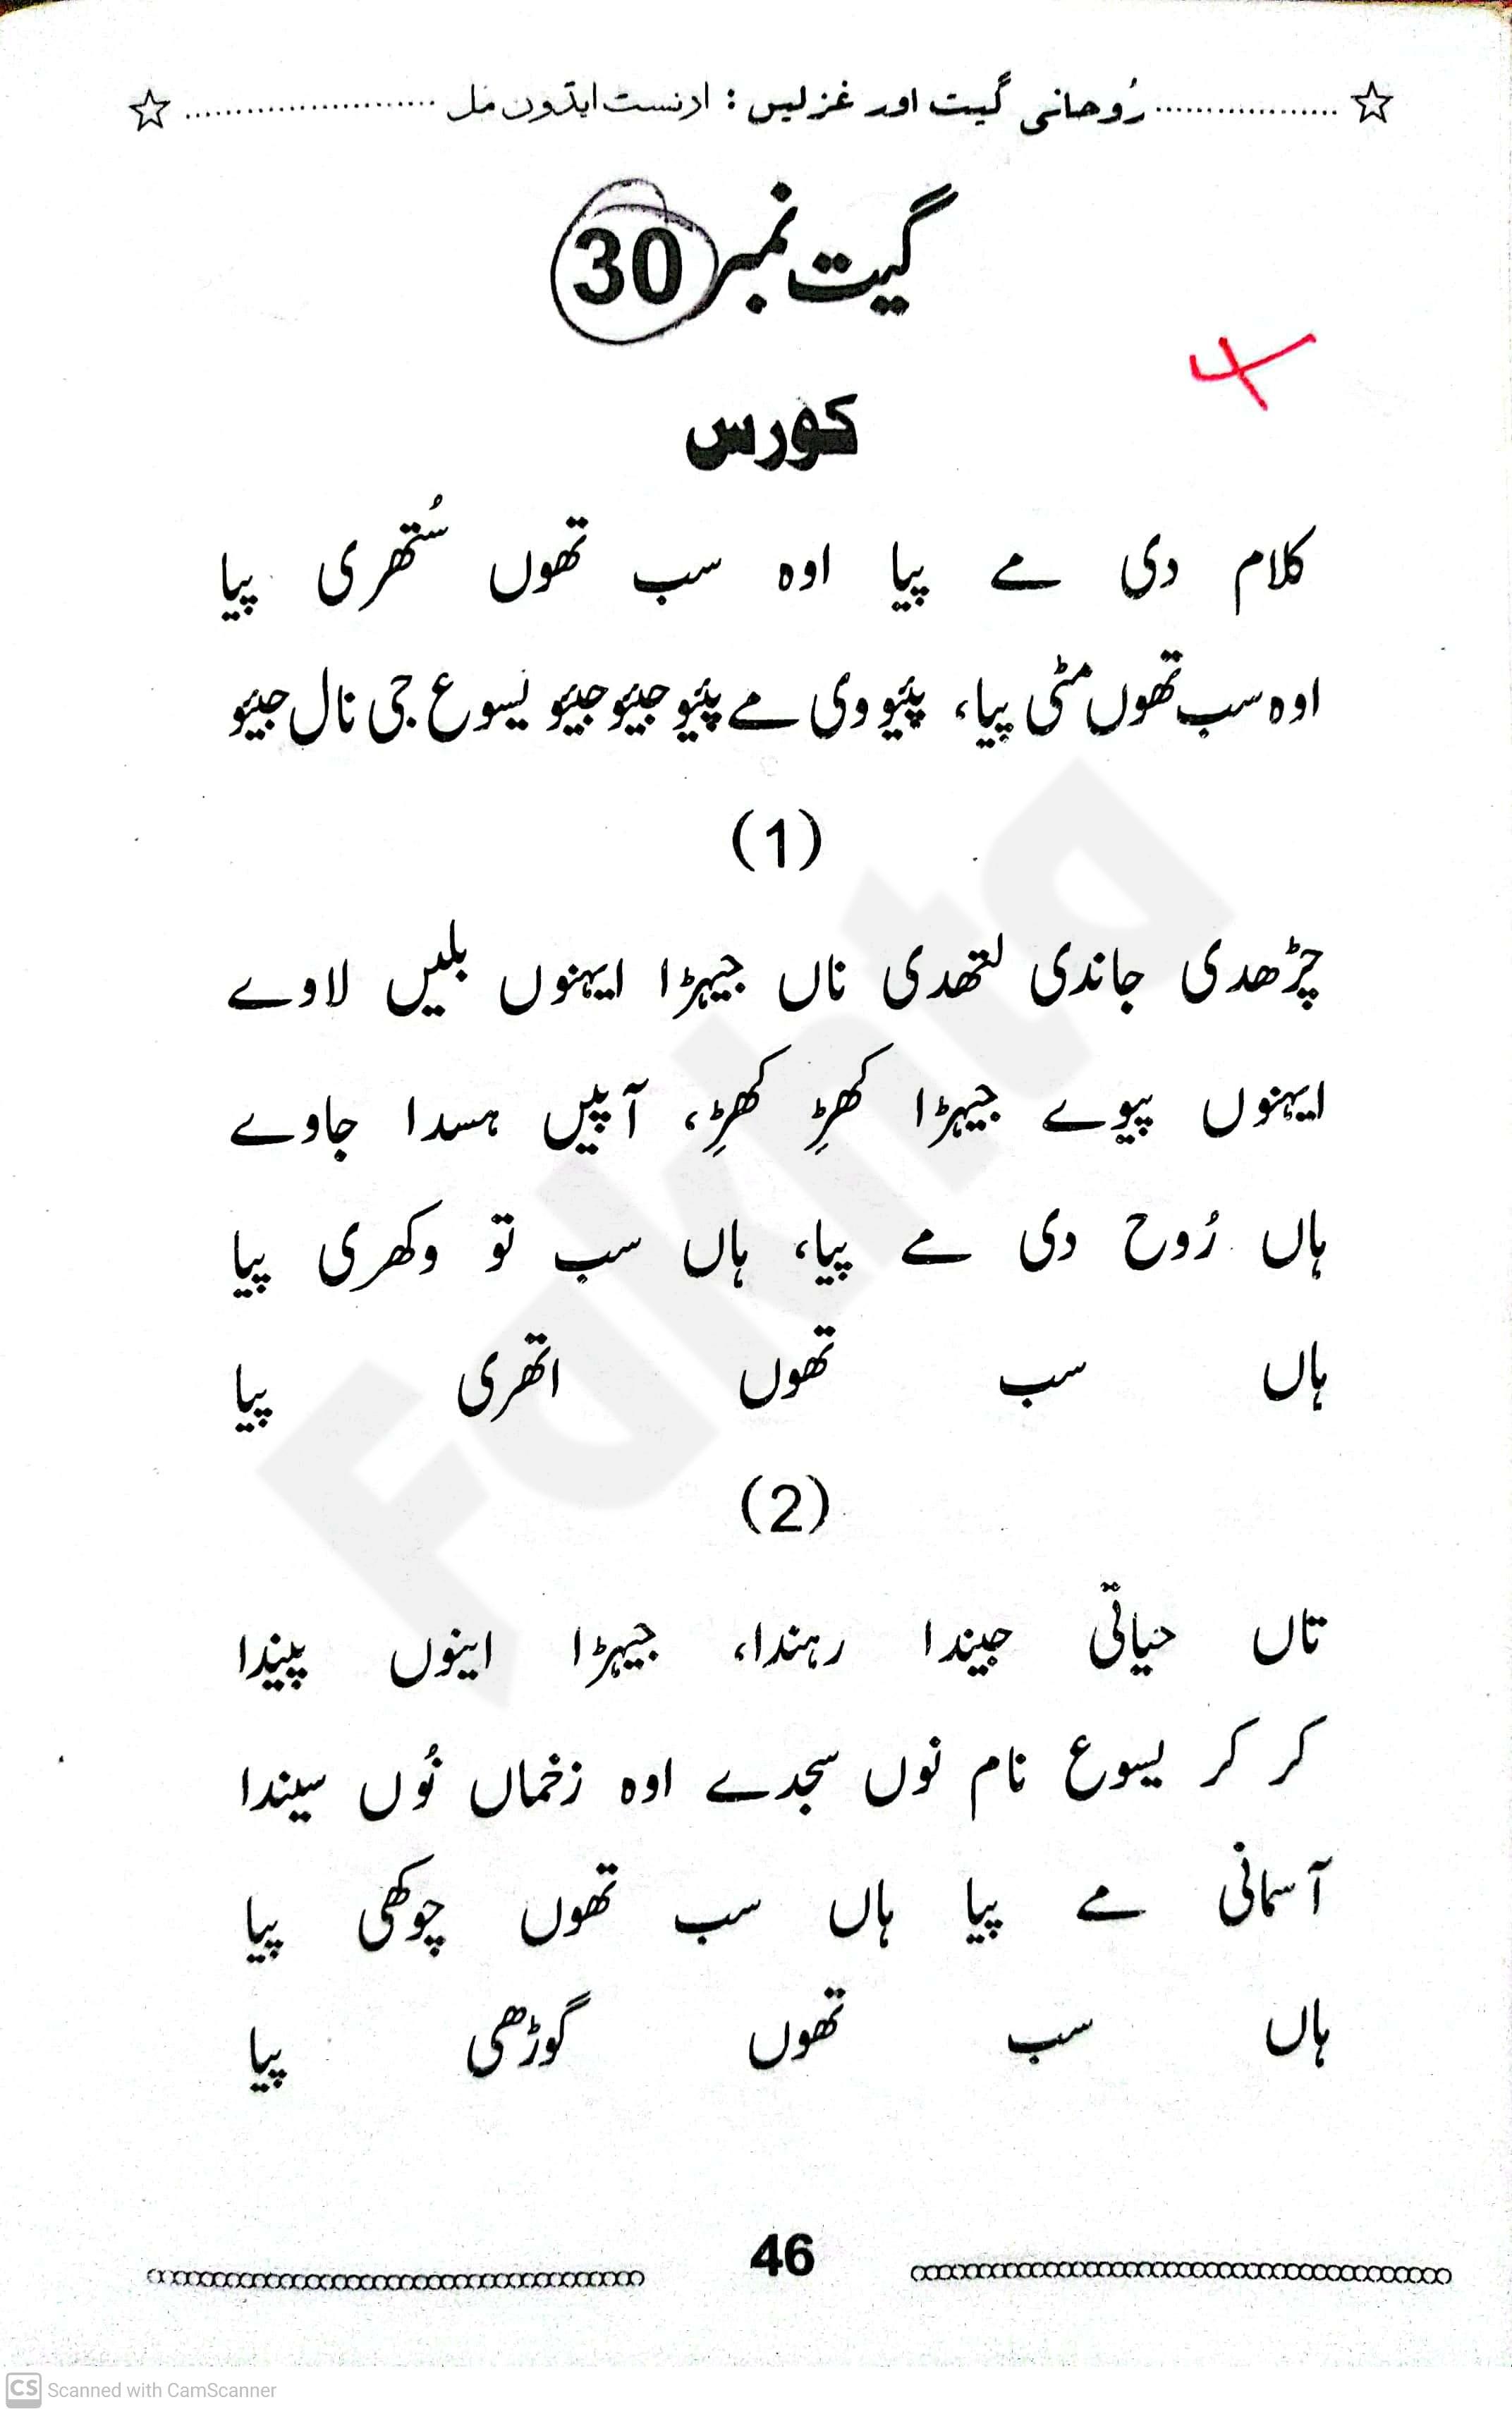 رُوحانی گیت اور غزلیں: ارنسٹ ایڈون مَل
گیت نمبر 30
کورس
کلام دی مے پیا اوہ سب تھوں سُتھری پیا
اوہ سب تھوں مٹی پیا، پئیو وی مے پئیو جیئو جیئو یسوع جی نال جیئو
(1)
چڑھدی جاندی لتھدی ناں جیہڑا ایہنوں بلیں لاوے
ایہنوں پیوے جیہڑا کھڑِ کھڑِ، آپیں ہسدا جاوے
ہاں رُوح دی مے پیا، ہاں سب تو وکھری پیا
ہاں سب تھوں اتھری پیا
(2)
تاں حیاتی جیندا رہندا، جیہڑا اینوں پیندا
کر کر یسوع نام نوں سجدے اوہ زخماں نُوں سیندا
آسمانی مے پیا ہاں سب تھوں چوکھی پیا
ہاں سب تھوں گوڑھی پیا
46
Fakhta
CS Scanned with CamScanner